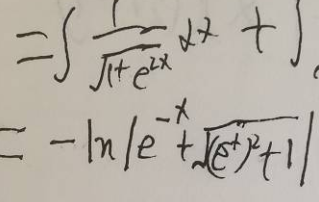 = ∫ 1/√(1+e^{2x}) dx + ∫
= -ln|e^{-x} + √((e^{x})²+1)|